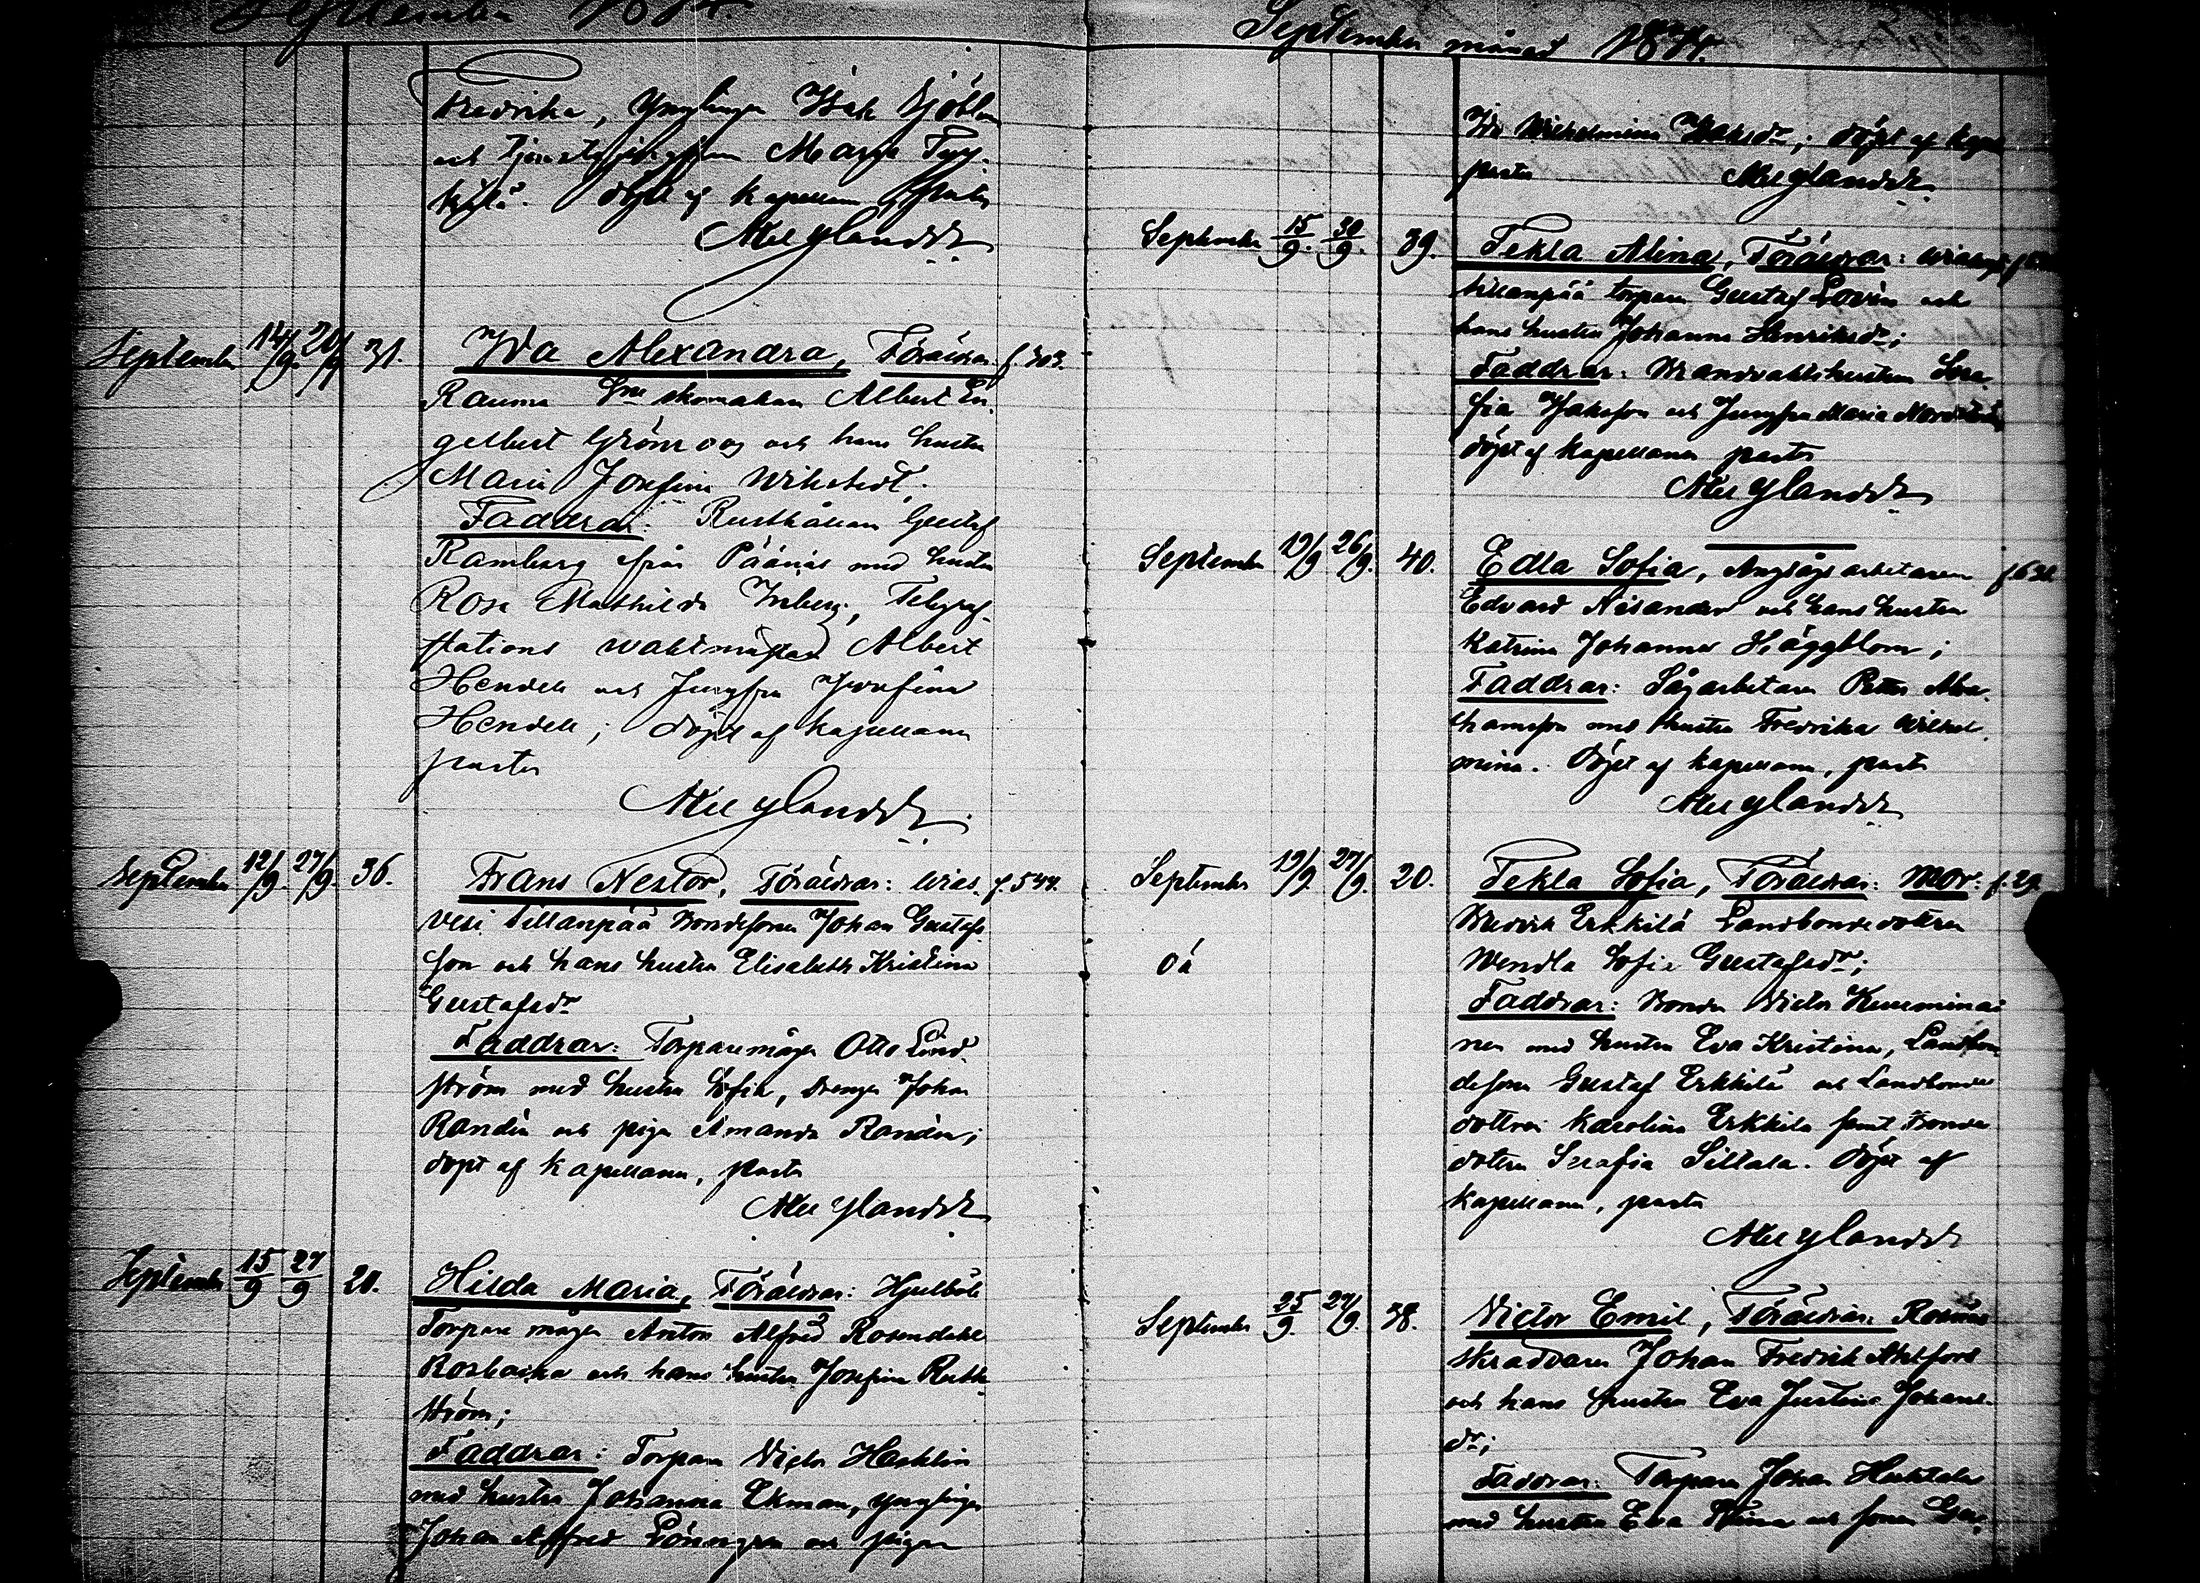 September 1874.
Fredrika, Ynglingen Isak Sjöblom
och Tjenstejungfrun Maria Tyr-
kylä. döpt af Kapellan Pastor
Ylander
September 14/9. 20/9 31. Ida Alexandra, Föräldrar f. 303.
Rauma skomakaren Albert En-
gelbert Grönroos och hans hustru
Maria Josefina Wikstedt.
Faddrar: Rusthållaren Gustaf
Ramberg från Päänäs med hustru
Rosa Mathilda Inberg, Telegraf-
stations waktmästaren Albert
Hendell och Jungfru Josefina
Hendell; döpt af Kapellanen
pastor
Ylander
September 12/9. 27/9. 36. Frans Nestor, Föräldrar: Wias- f. 544.
vesi Sillanpää Bondesonen Johan Gustafs-
son och hans hustru Elisabeth Kristina
Gustafsdr
Faddrar: Torparemågen Otto Lind-
ström med hustru Sofia, drengen Johan
Randén och pigan Amanda Randén;
döpt af Kapellanen, pastor
Ylander
September 15/9 27/9 20. Hilda Maria, Föräldrar: Hjulböle
Torpare mågen Anton Alfred Rosendahl
Rosbacka och hans hustru Josefina
ström;
Faddrar: Torparen Victor Hacklin
med hustru Johanna Ekman, ynglingen
Johan Alfred Lönngren och pigan
September månad 1874.
Ida Wilhelmina Isaksdr; döpt af Kapellan
pastor Ylander
September 15/9. 30/9. 39. Tekla Alina, Föräldrar: Wiasvesi
Sillanpää torparen Gustaf Lovén och
hans hustru Johanna Henriksdr;
Faddrar: Brandvaktshustrun Sera-
fia Jakobsson och Jungfru Maria Nordström
döpt af Kapellanen pastor
Ylander
September 19/9 26/9. 40. Edla Sofia, Ångsågs arbetaren
Edvard Nisander och hans hustru
Katrina Johanna Häggblom;
Faddrar: Sågarbetaren Petter Abra-
hamsson med hustru Fredrika Wilhel-
mina. Döpt af Kapellanen, pastor
Ylander
September 19/9. 27/9. 20. Tekla Sofia, Föräldrar: Mor: f. 29.
Erkkilä Landbondedottren
Wendla Sofia Gustafsdr;
oä
Faddrar: Bonden Victor Kuuminai-
nen med hustru Eva Kristina, Landbon-
desonen Gustaf Erkkilä och Landbonde
dottren Karolina Erkkilä samt Bonde
dottren Serafia Sillala. Döpt af
Kapellanen, pastor
Ylander
September 25/9. 27/9. 38. Victor Emil, Föräldrar:
skräddaren Johan Fredrik Ahlfors
och hans hustru Eva Justina Johans-
dr;
Faddrar: Torparen Johan Huhtala
med hustru Eva Stina och sonen Gus-